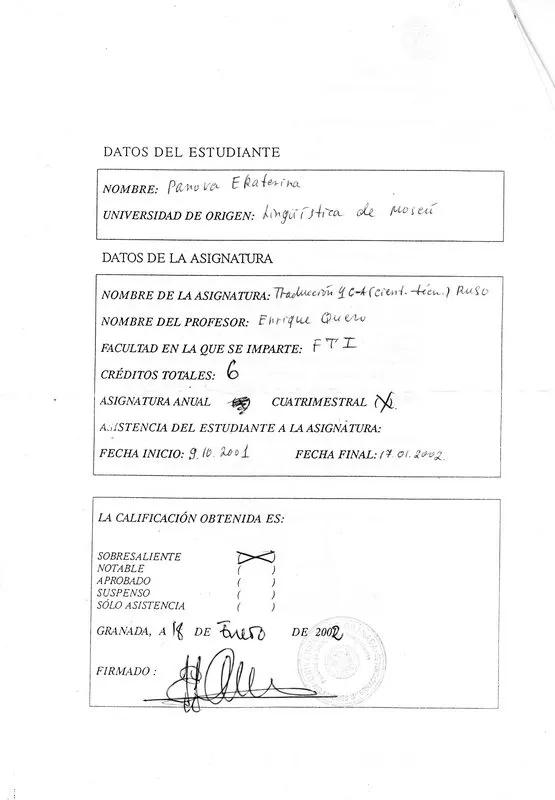 DATOS DEL ESTUDIANTE
NOMBRE: Panova Ekaterina
UNIVERSIDAD DE ORIGEN: Lingüística de Moscú
DATOS DE LA ASIGNATURA
NOMBRE DE LA ASIGNATURA: Traducción 4 C-A (cient.-técn.) Ruso
NOMBRE DEL PROFESOR: Enrique Quero
FACULTAD EN LA QUE SE IMPARTE: FTI
CRÉDITOS TOTALES: 6
ASIGNATURA ANUAL CUATRIMESTRAL (X).
ASISTENCIA DEL ESTUDIANTE A LA ASIGNATURA:
FECHA INICIO: 9.10.2001 FECHA FINAL: 17.01.2002.
LA CALIFICACIÓN OBTENIDA ES:
SOBRESALIENTE (X)
NOTABLE ( )
APROBADO ( )
SUSPENSO ( )
SÓLO ASISTENCIA ( )
GRANADA, A 18 DE Enero DE 2002
FIRMADO :